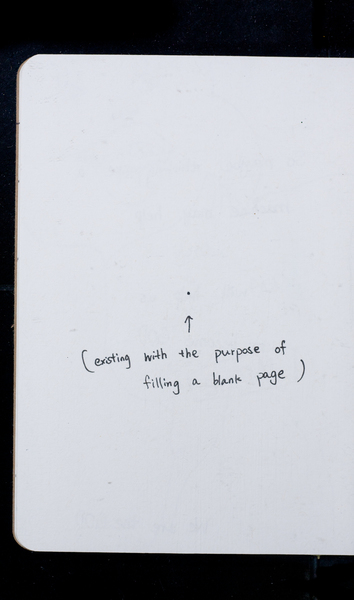 (existing with the purpose of
filling a blank page)